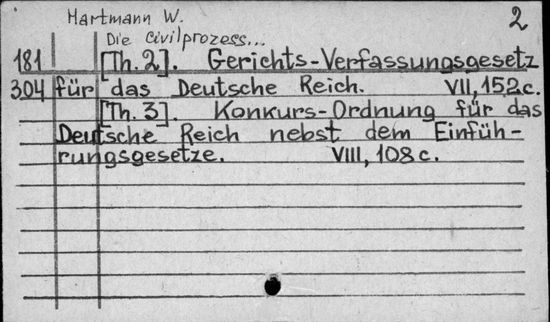 Hartmann W. 2
Die Civilprozess...
181 [Th. 2]. Gerichts-Verfassungsgesetz
304 für das Deutsche Reich. VII, 152 c.
[Th. 3]. Konkurs-Ordnung für das
Deutsche Reich nebst dem Einfüh-
rungsgesetze. VIII, 108 c.